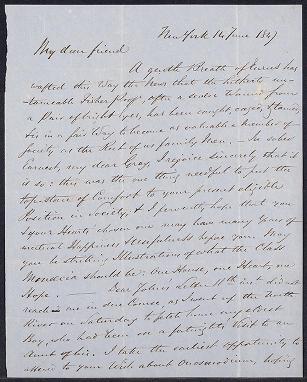 New York 14 June 1847
My dear friend
A gentle Breath of
wafted this Way the News that the hitherto un-
tameable Fisher, after a
a Pair of bright eyes, has been caught, caged, & tamed,
& is in a fair Way to become as valuable a member of
society as the Rest of us family Men. — In sober
Earnest, my dear Gray, I rejoice sincerely that it
is so: this was the one thing needful to put the
top stone of Comfort to your present eligible
Position in society, & I fervently hope that you
& your Heart's chosen one may have many Years of
mutual Happiness & Usefulness before you. May
you be striking Illustrations of what the Class
should be: One House, one Heart, one
Hope. — Dear John's Letter 11th inst did not
reach me in due Course, as I went up the North
River on Saturday to fetch home my eldest
Boy, who had been on a fortnight's Visit to an
Aunt of his. I take the earliest opportunity to
answer to your Wish about Onosmodium, hoping